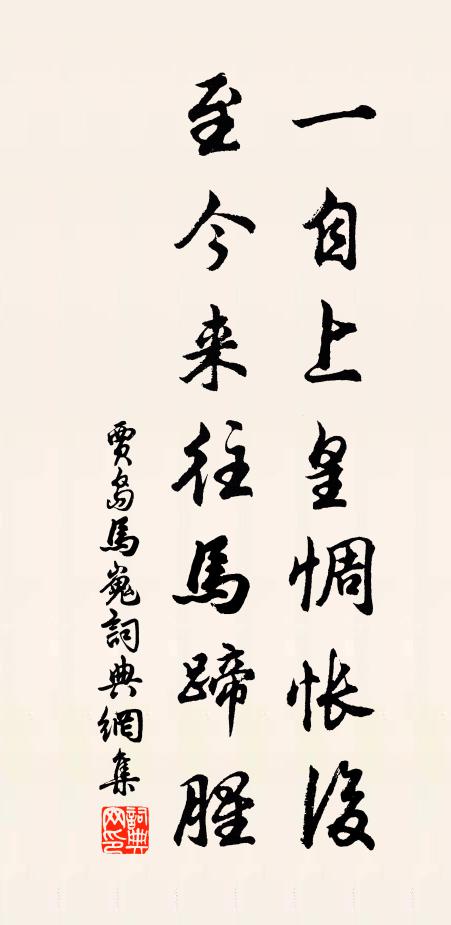 一自上皇惆怅後
至今来往馬蹄腥
賈島馬嵬詞典網集
詞典網印